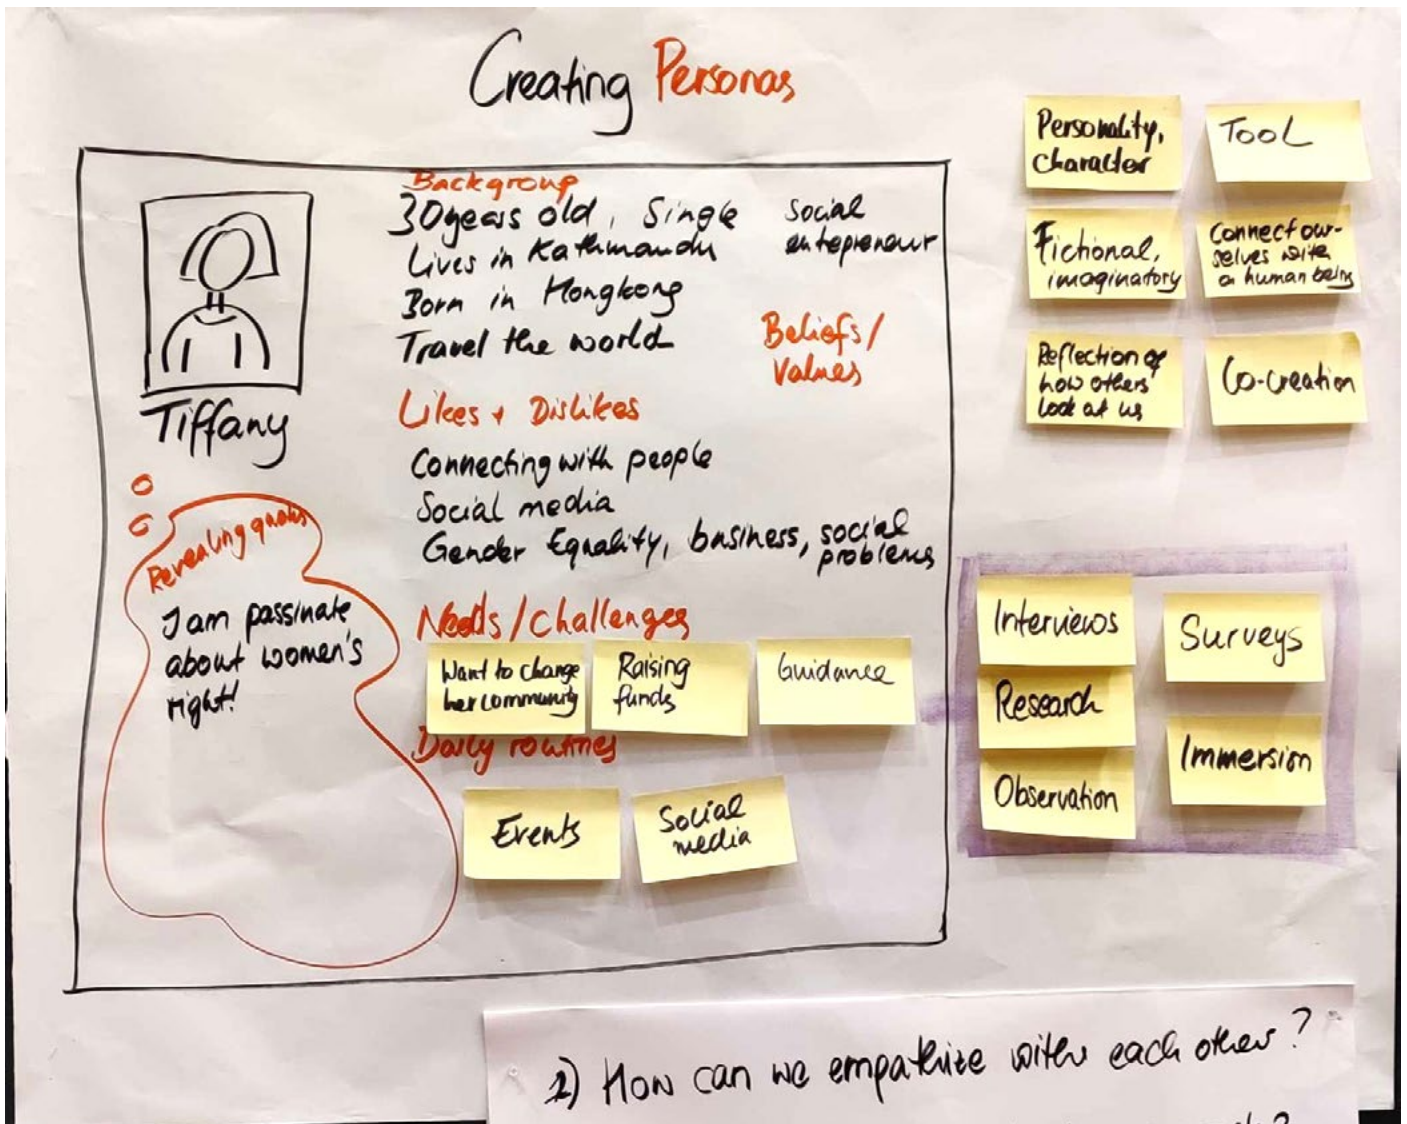 Creating Personas
Backgroup
30years old, Single
Lives in Kathmandu
Born in Hongkong
Travel the world
Social
entepreneur
Beliefs/
Values
Tiffany
Likes + Dislikes
Connecting with people
Social media
Gender Equality, business, social
problems
Revealing quotes
I am passinate
about women's
right!
Needs/challenges
Want to change
her community
Raising
funds
Guidance
Daily routines
Events
Social
media
Personality,
character
TOOL
Fictional,
imaginatory
Connect our-
selves with
a human being
Reflection of
how others
look at us
Co-creation
Interviews
Surveys
Research
Immersion
Observation
2) How can we empathize with each other?